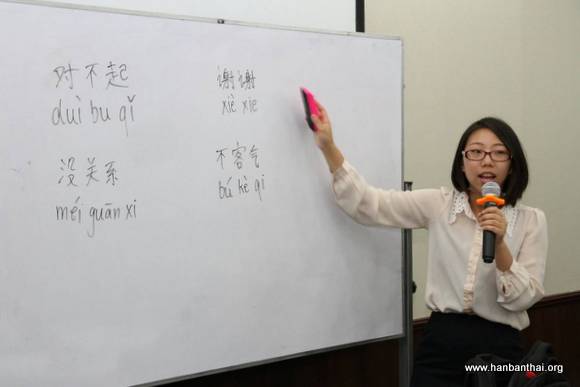 对不起
duì bu qǐ
没关系
méi guān xi
谢谢
xiè xie
不客气
bú kè qi
www.hanbanthai.org